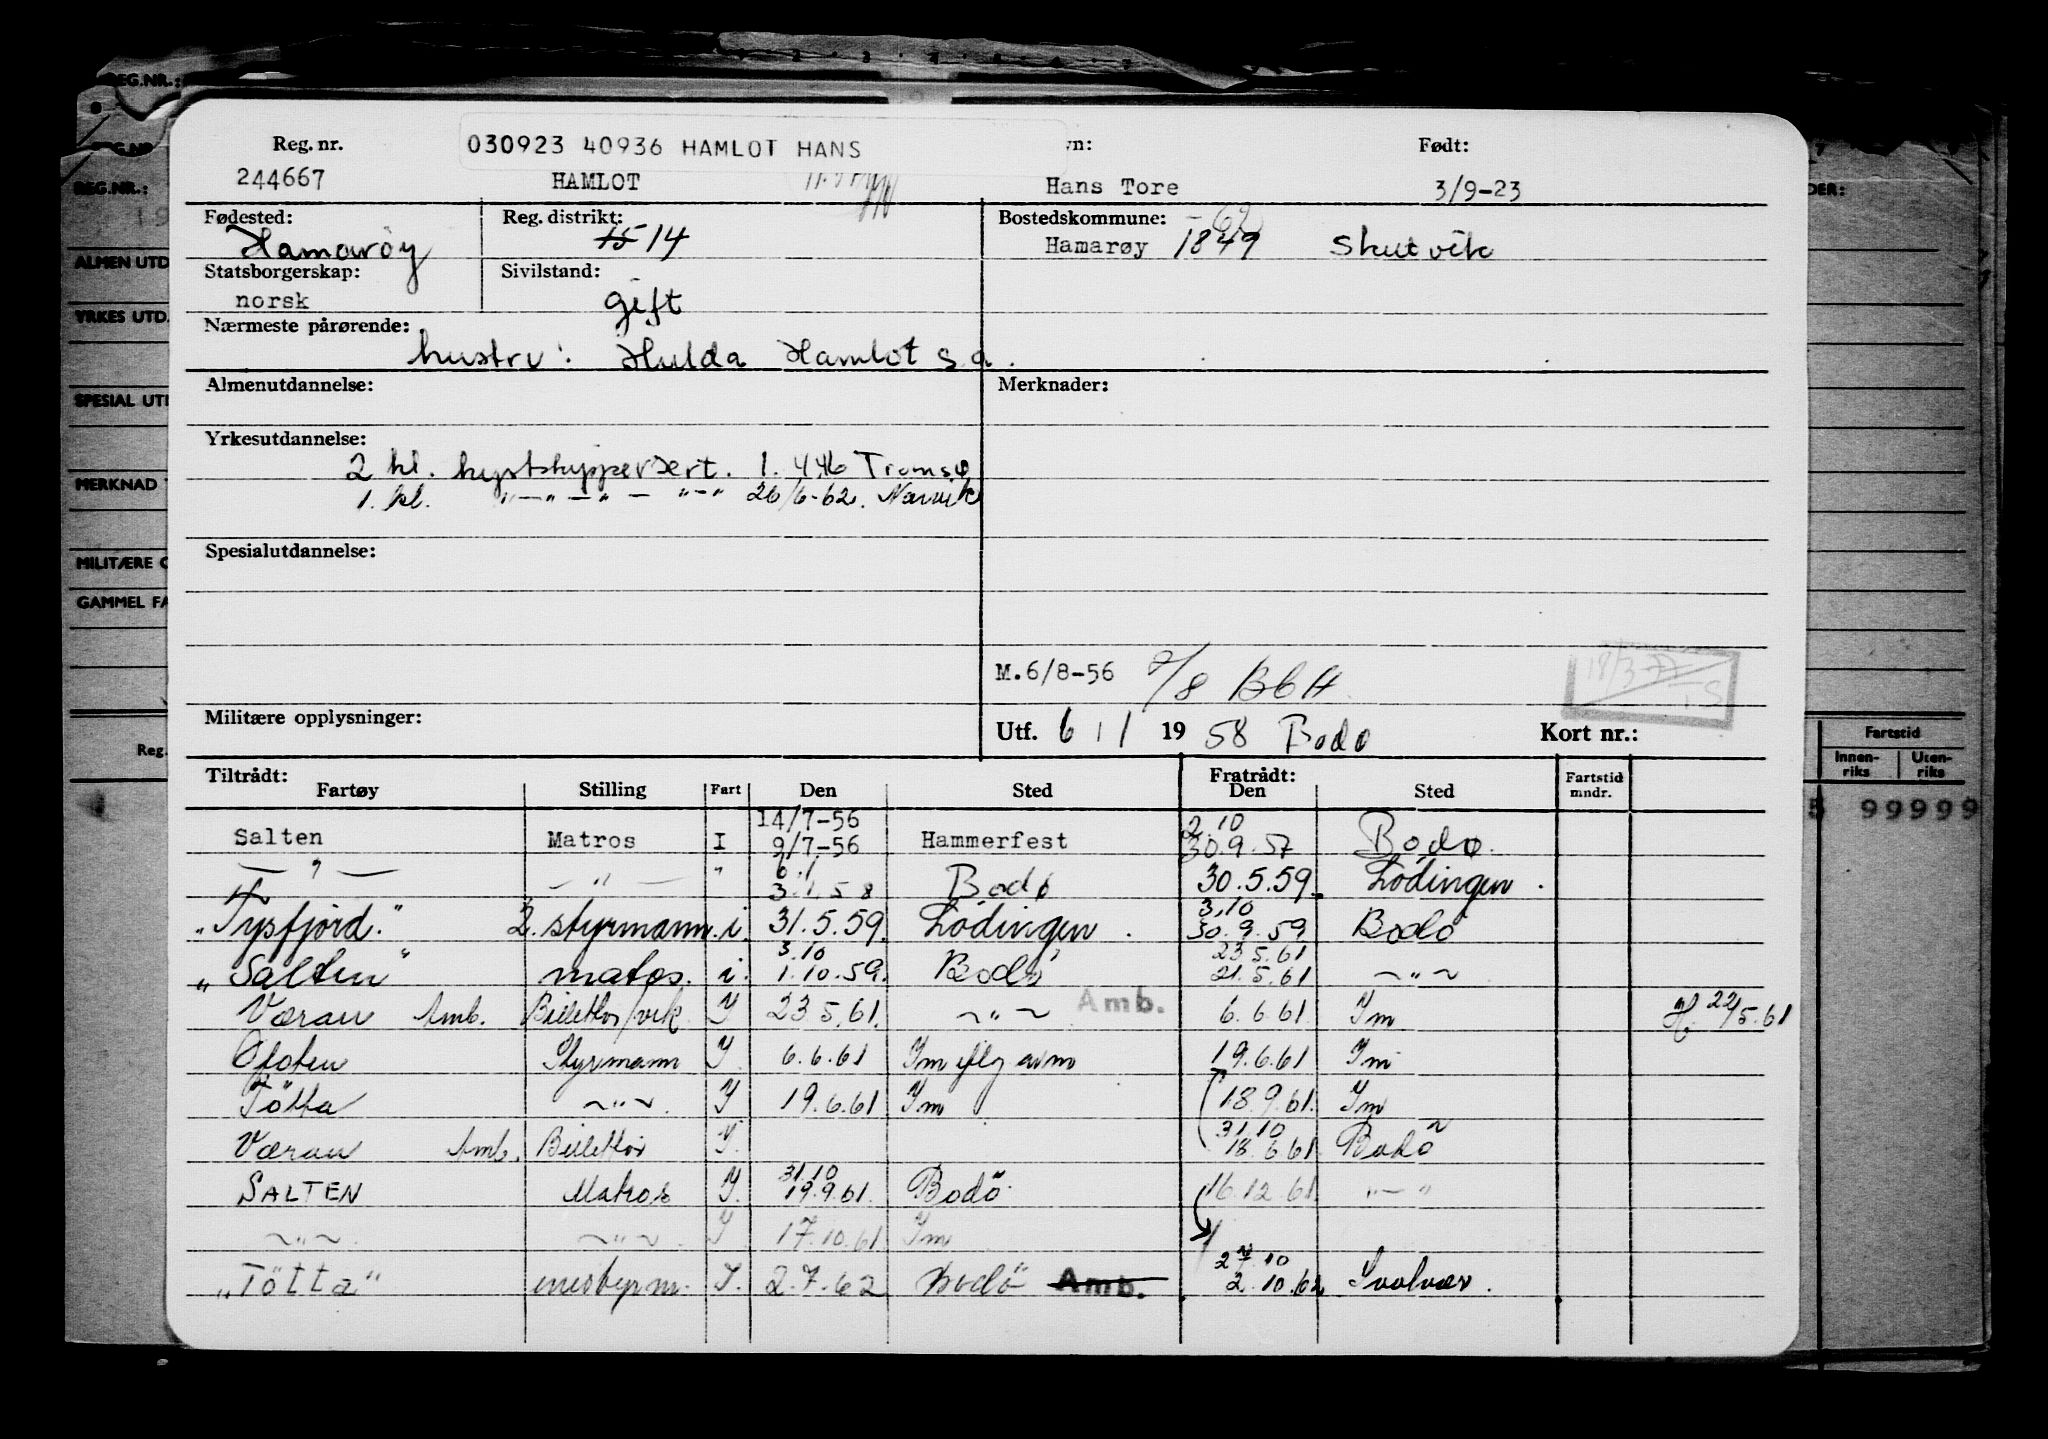 REG.NR.:
REG.NR.:
ALMEN UTD
YRKES UTD.
SPESIAL UTD
MERKNAD
MILITÆRE
GAMMEL FA
Reg.
Fartstid
Innen-riks Uten-riks
99999
Reg. nr. 030923 40936 HAMLOT HANS Født:
244667 HAMLOT Hans Tore 3/9-23
Fødested: Reg. distrikt: Bostedskommune: -62
Hamarøy 15 14 Hamarøy 1849 Skutvik
Statsborgerskap: Sivilstand:
norsk gift
Nærmeste pårørende:
hustru: Hulda Hamlot s.a.
Almenutdannelse: Merknader:
Yrkesutdannelse:
2 kl. kystskippersert. 1.4.46 Tromsø
1. kl. "—"—"— "—" 26/6-62. Narvik
Spesialutdannelse:
M.6/8-56 7/8 BGH 18/3-77 TS
Militære opplysninger: Utf. 6/1 1958 Bodø Kort nr.:
Tiltrådt: Fratrådt: Fartstid mndr.
Fartøy Stilling Fart Den Sted Den Sted
14/7-56 2.10
Salten Matros I 9/7-56 Hammerfest 30.9.57 Bodø.
6.1
—"— —"— " 3.1.58 Bodø 30.5.59. Lødingen.
3.10
"Tysfjord." 2. styrmann. i. 31.5.59. Lødingen. 30.9.59 Bodø
3.10 23.5.61
"Salten" matos. i. 1.10.59. Bodø 21.5.61 ~"~
Væran Amb. Billettør/vik Y 23.5.61. ~"~ Amb. 6.6.61. Im H. 22/5.61
Ofoten Styrmann Y 6.6.61 Im 19.6.61 Im
Tötta ~"~. Y 19.6.61 Im 18.9.61. Im
31.10
Væran Amb. Billettör Y. 18.6.61. Bodö
31.10
SALTEN Matros Y. 19.9.61. Bodö 16.12.61. "—"
~"~. ~"~. Y 17.10.61 Im
10
"Tötta" Y. 2.7.62 Bodö Amb. 2.10.62 Svolvær.